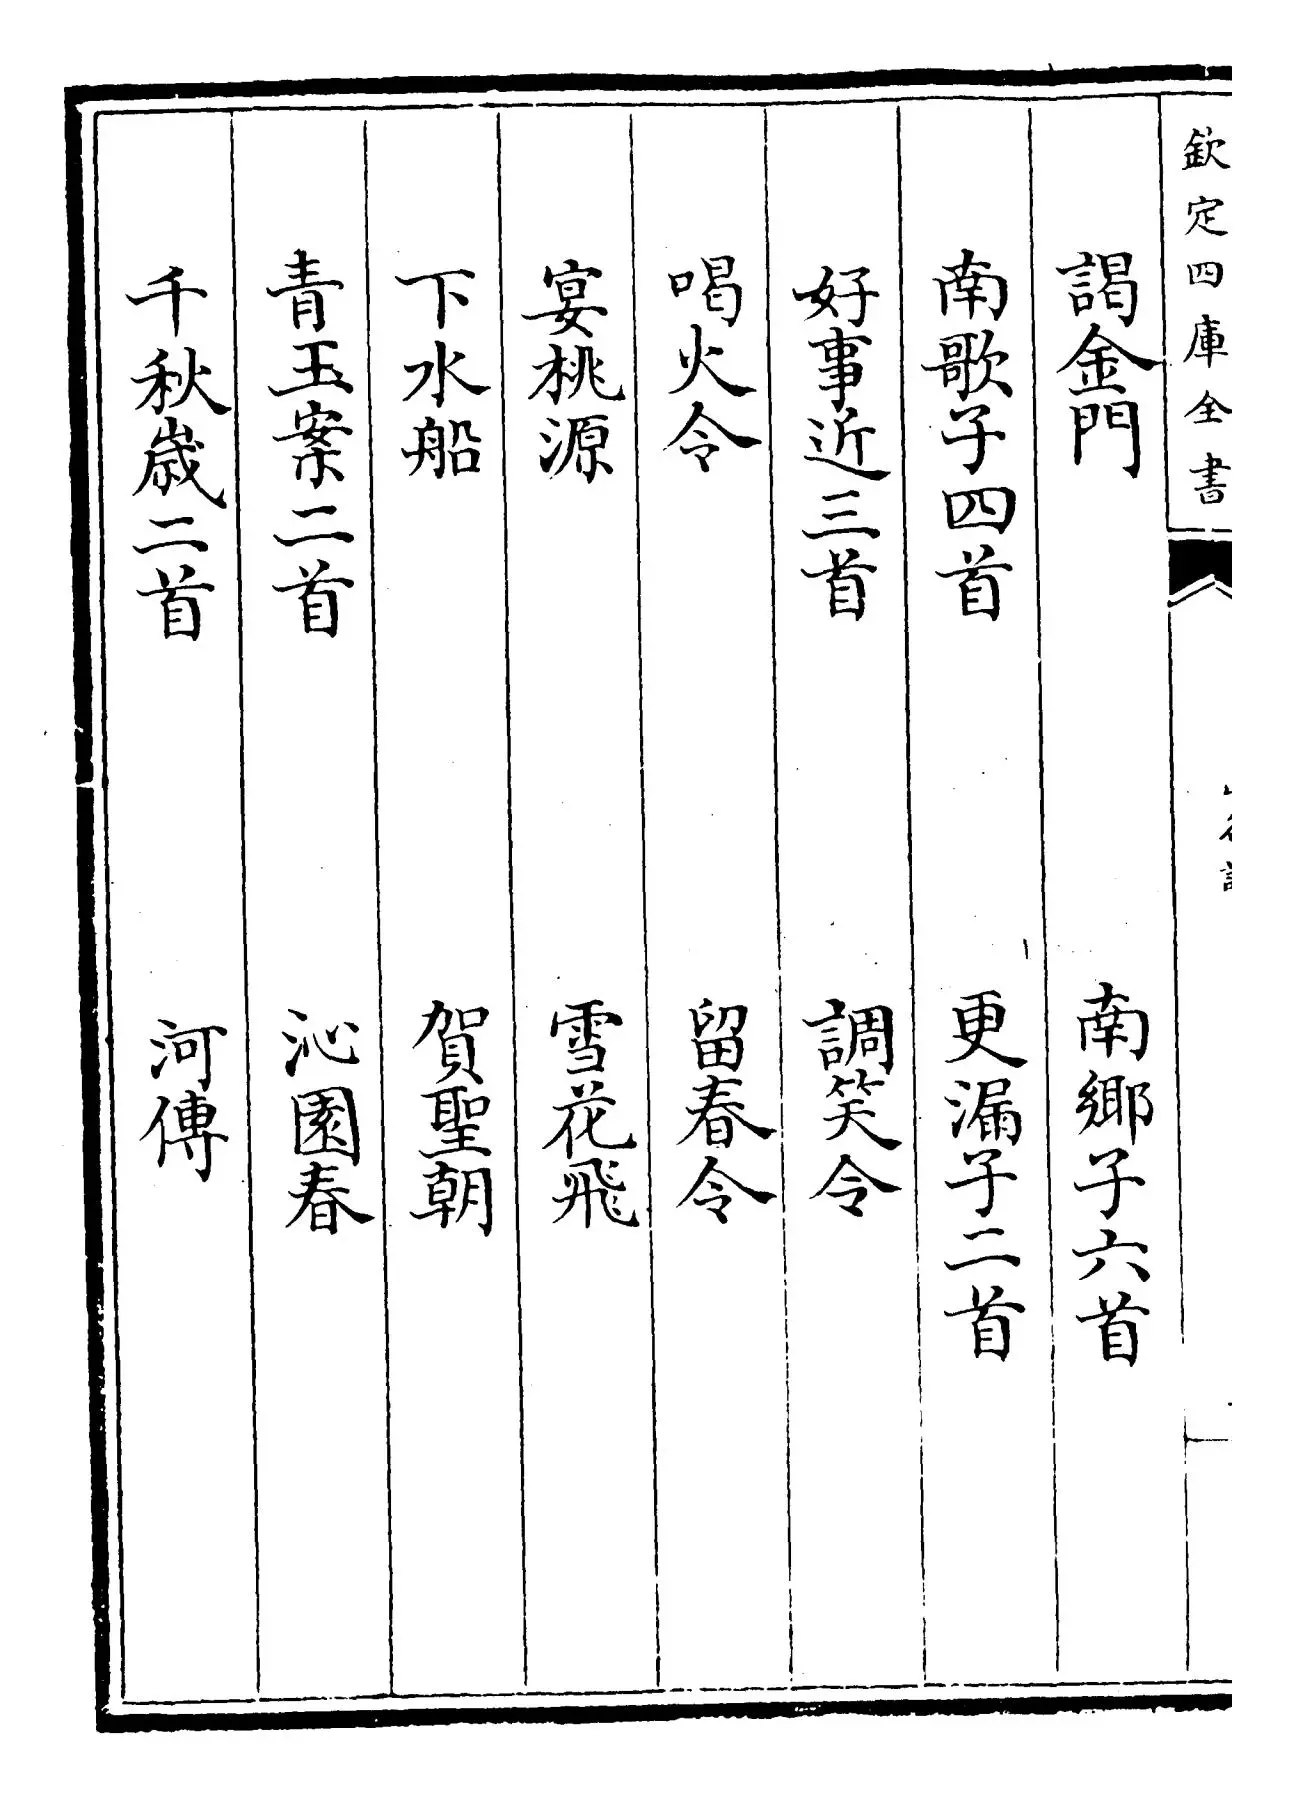 欽定四庫全書
謁金門 南鄉子六首
南歌子四首 更漏子二首
好事近三首 調笑令
喝火令 留春令
宴桃源 雪花飛
下水船 賀聖朝
青玉案二首 沁園春
千秋歲二首 河傳